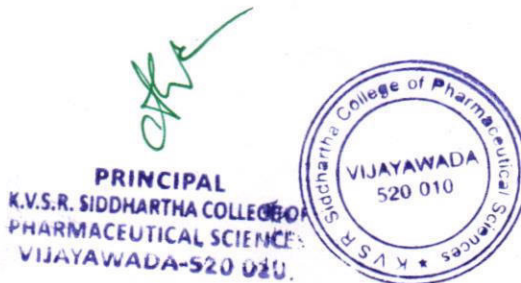 PRINCIPAL
K.V.S.R. SIDDHARTHA COLLEGE OF
PHARMACEUTICAL SCIENCES
VIJAYAWADA-520 010.
K V S R Siddhartha College of Pharmaceutical Sciences ★
VIJAYAWADA
520 010